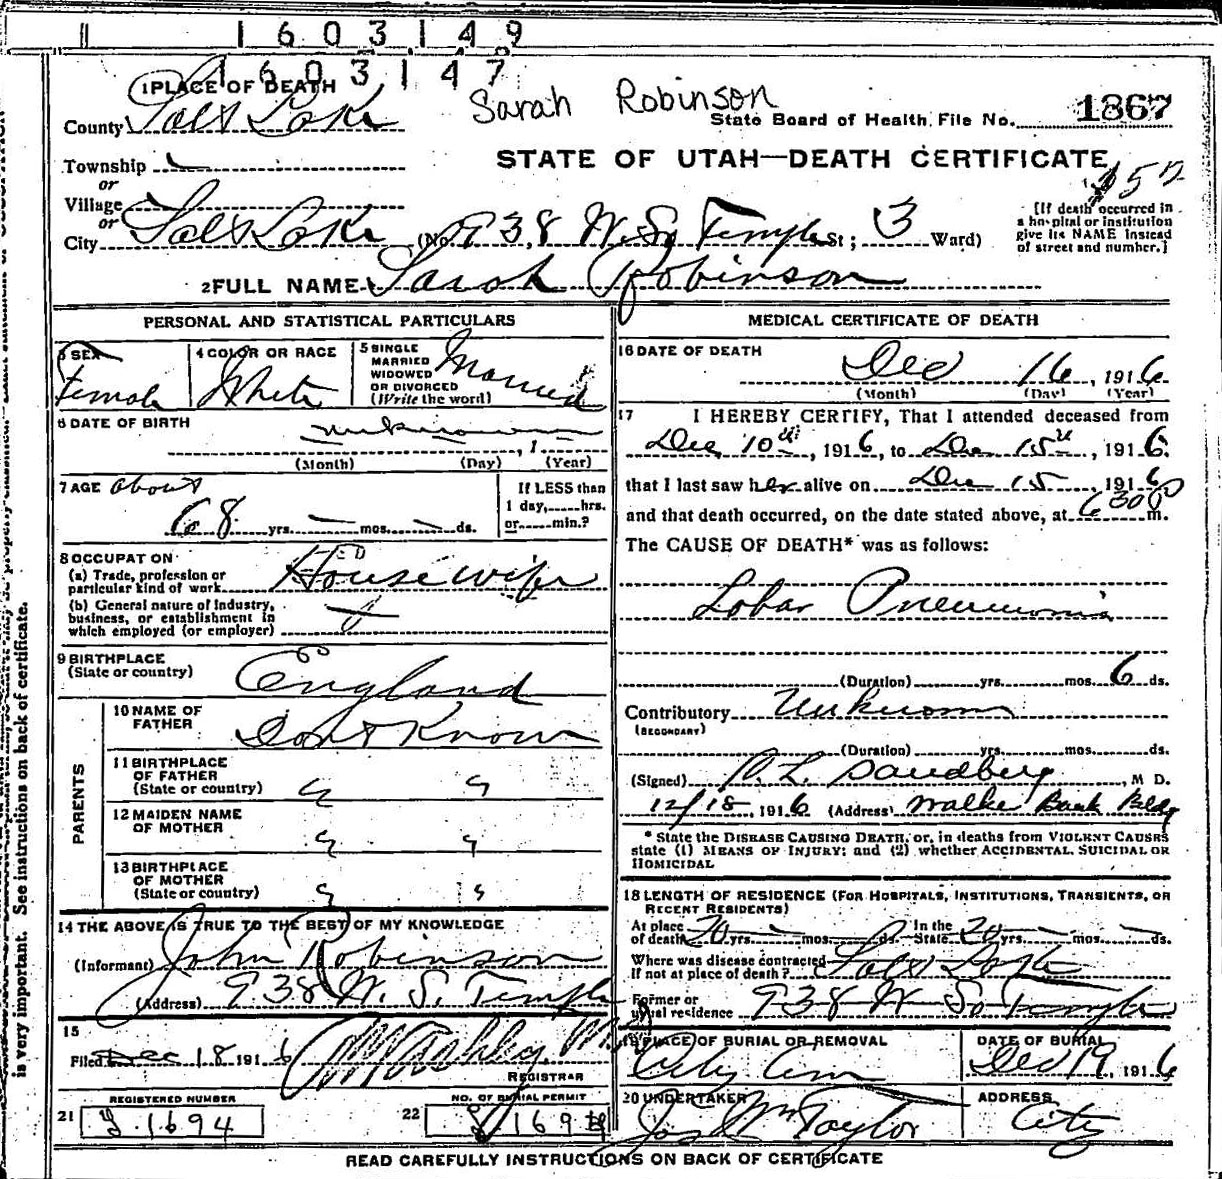 1603149
1603147
1 PLACE OF DEATH
Sarah Robinson
County Salt Lake
State Board of Health File No. 1867
Township
STATE OF UTAH—DEATH CERTIFICATE
or
Village
or
City Salt Lake (No. 938 W. So Temple St; 3 Ward)
[If death occurred in
a hospital or institution
give its NAME instead
of street and number.]
2 FULL NAME Sarah Robinson
PERSONAL AND STATISTICAL PARTICULARS
3 SEX
Female
4 COLOR OR RACE
White
5 SINGLE
MARRIED
WIDOWED
OR DIVORCED
(Write the word)
Married
6 DATE OF BIRTH
unknown , 1
(Month) (Day) (Year)
7 AGE about
68 yrs. — mos. — ds.
If LESS than
1 day, hrs.
or min.?
8 OCCUPATION
(a) Trade, profession or
particular kind of work
Housewife
(b) General nature of Industry,
business, or establishment in
which employed (or employer)
9 BIRTHPLACE
(State or country)
England
PARENTS
10 NAME OF
FATHER
Don't Know
11 BIRTHPLACE
OF FATHER
(State or country)
12 MAIDEN NAME
OF MOTHER
13 BIRTHPLACE
OF MOTHER
(State or country)
14 THE ABOVE IS TRUE TO THE BEST OF MY KNOWLEDGE
(Informant) John Robinson
(Address) 938 W. S. Temple
15
Filed Dec 18 1916
REGISTRAR
REGISTERED NUMBER
21
1694
NO. OF BURIAL PERMIT
22
MEDICAL CERTIFICATE OF DEATH
16 DATE OF DEATH
Dec 16, 1916
(Month) (Day) (Year)
17 I HEREBY CERTIFY, That I attended deceased from
Dec 10th, 1916, to Dec 15th, 1916
that I last saw her alive on Dec 15, 1916
and that death occurred, on the date stated above, at 6 30 P m.
The CAUSE OF DEATH* was as follows:
Lobar Pneumonia
(Duration) yrs. mos. 6 ds.
Contributory Unknown
(SECONDARY)
(Duration) yrs. mos. ds.
(Signed) L. Sandberg, M D.
12/18, 1916 (Address) Walker Bank Bldg
* State the DISEASE CAUSING DEATH, or, in deaths from VIOLENT CAUSES
state (1) MEANS OF INJURY; and (2) whether ACCIDENTAL, SUICIDAL OR
HOMICIDAL
18 LENGTH OF RESIDENCE (FOR HOSPITALS, INSTITUTIONS, TRANSIENTS, OR
RECENT RESIDENTS)
At place
of death 20 yrs. — mos. — ds.
In the
State 20 yrs. — mos. — ds.
Where was disease contracted
If not at place of death? Salt Lake
Former or
usual residence 938 W So Temple
19 PLACE OF BURIAL OR REMOVAL
City Cem
DATE OF BURIAL
Dec 19, 1916
20 UNDERTAKER
Jos Wm Taylor
ADDRESS
City
READ CAREFULLY INSTRUCTIONS ON BACK OF CERTIFICATE
is very important. See instructions on back of certificate.